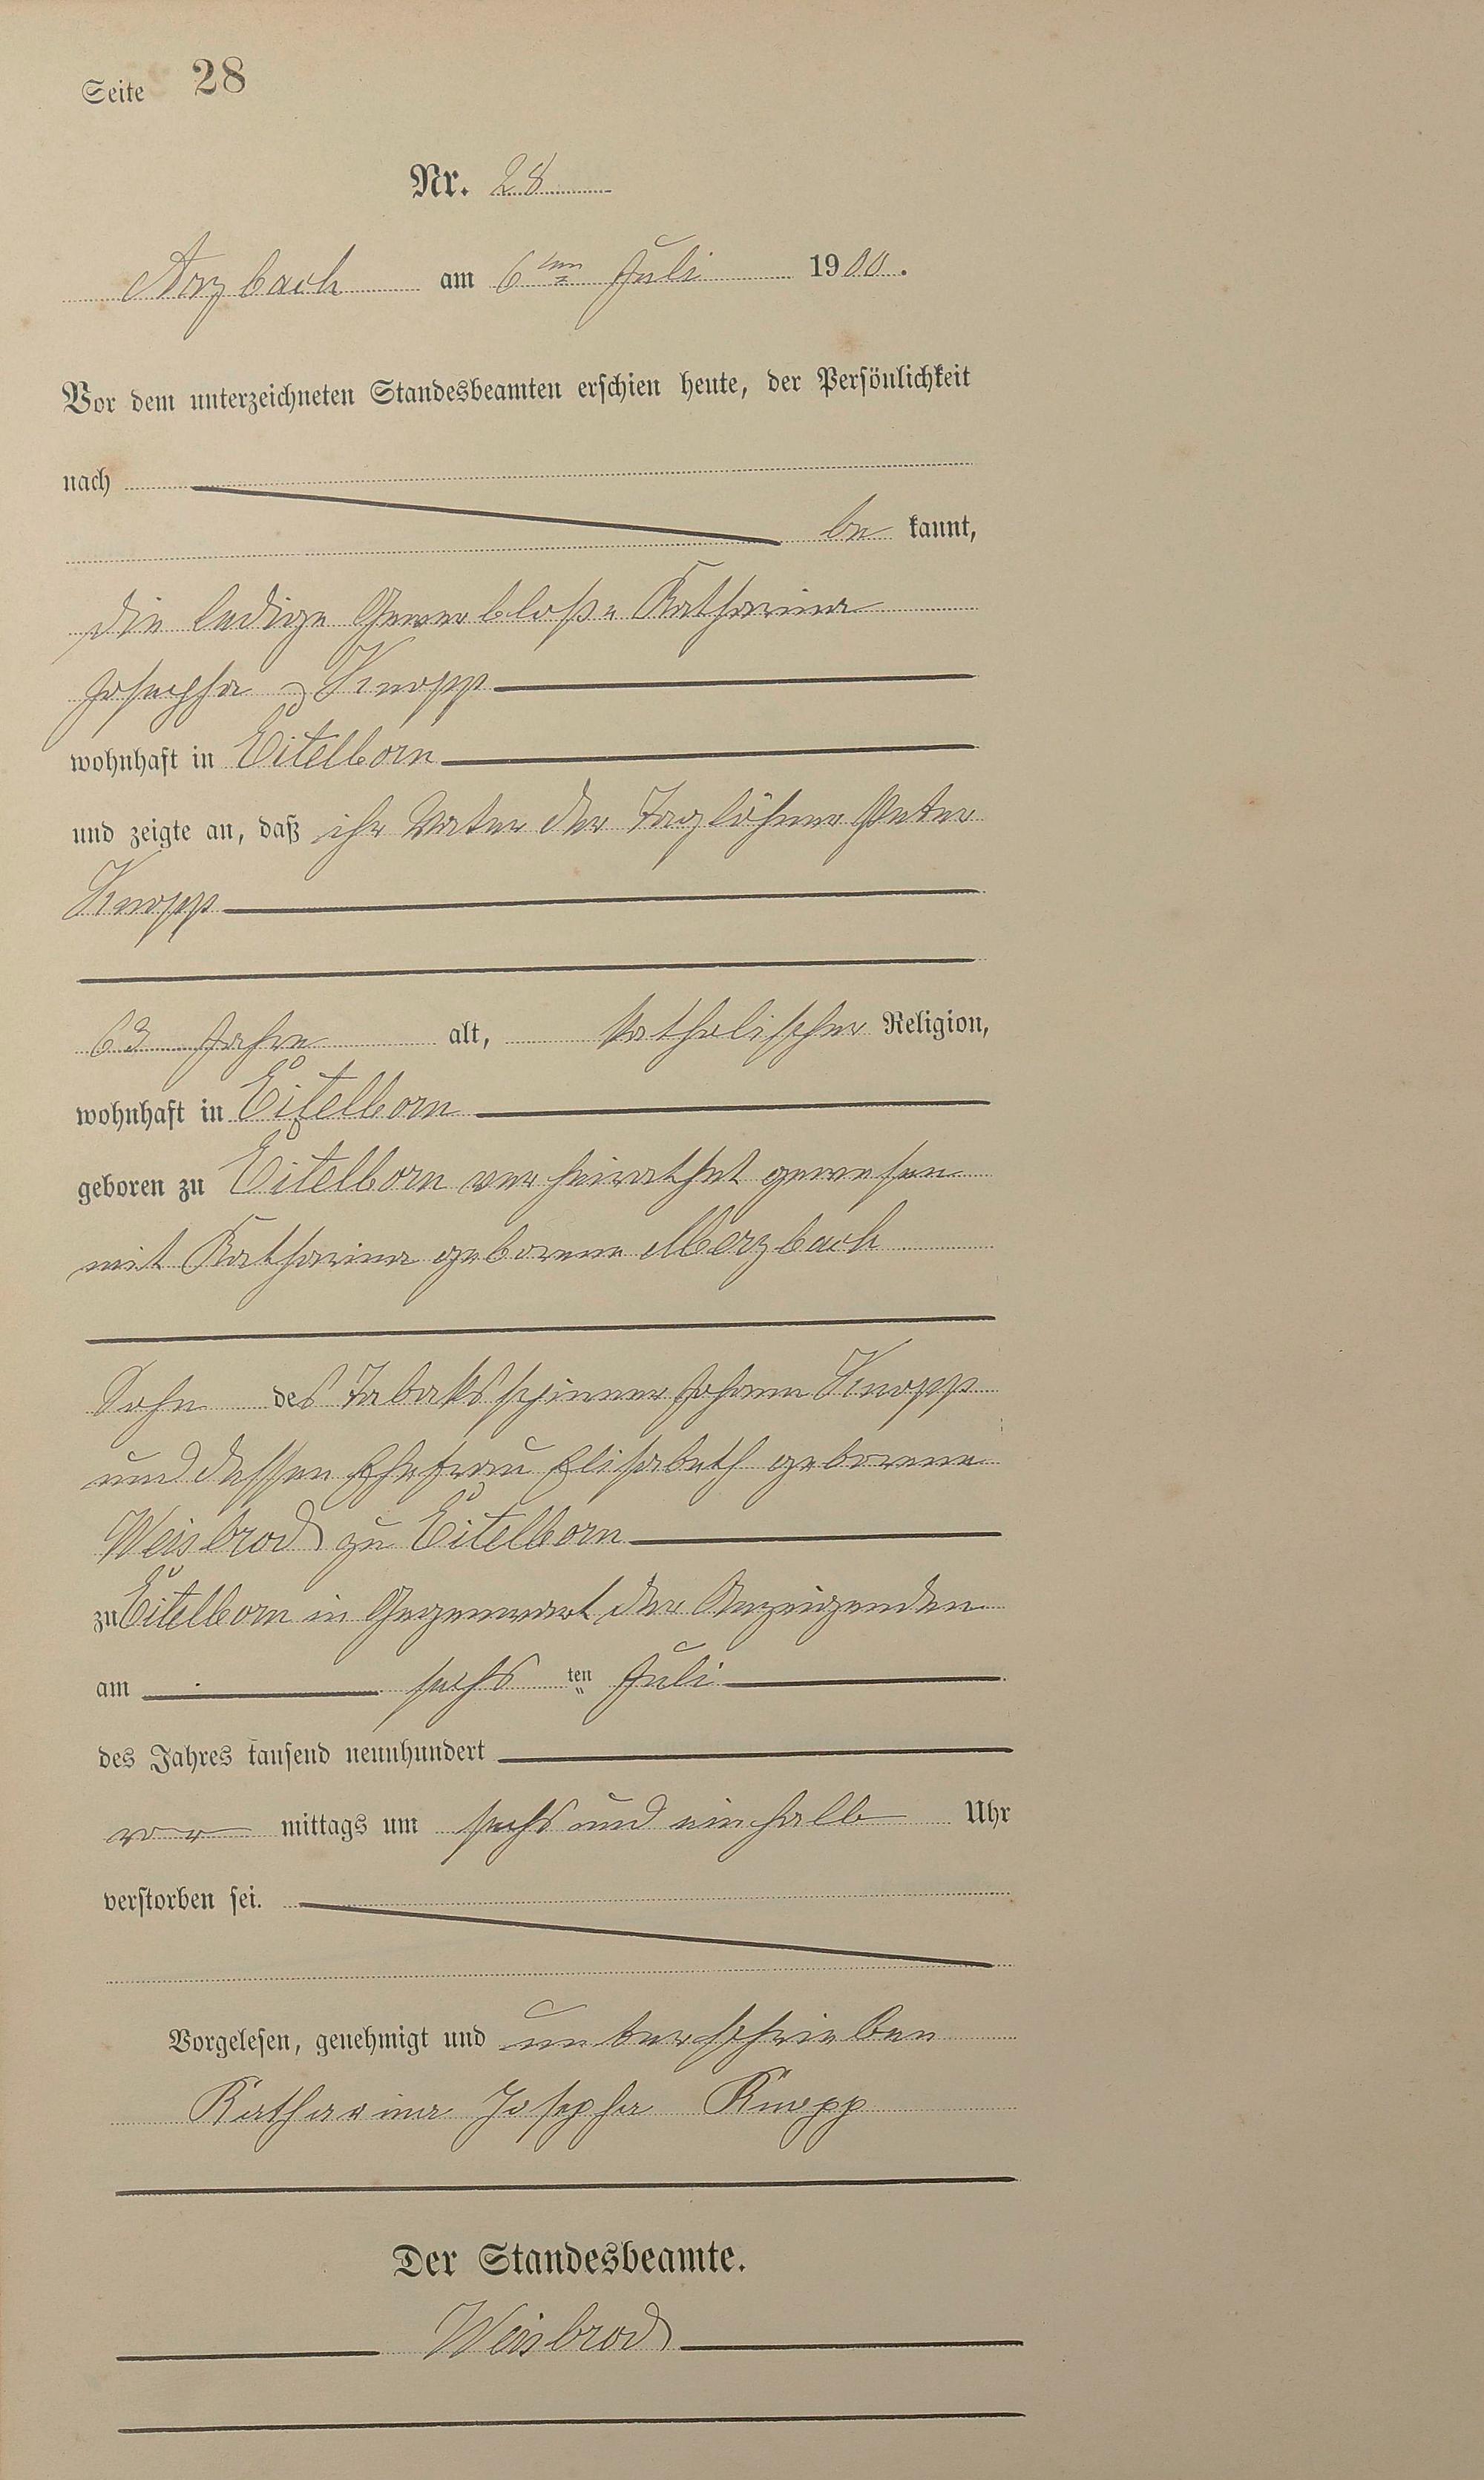 Seite 28
Nr. 28
Arzbach am 6ten Juli 1900.
Vor dem unterzeichneten Standesbeamten erschien heute, der Persönlichkeit
nach
be kannt,
die ledige Gewerblose Katharina
Josepha Knopp
wohnhaft in Eitelborn
und zeigte an, daß ihr Vater der Taglöhner Peter
Knopp
63 Jahre alt, katholischer Religion,
wohnhaft in Eitelborn
geboren zu Eitelborn verheirathet gewesen
mit Katharina geborene Merzbach
Sohn des Tabakspinner Johann Knopp
und dessen Ehefrau Elisabeth geborene
Weisbrod zu Eitelborn
zu Eitelborn in Gegenwart der Anzeigenden
am sechs ten Juli
des Jahres tausend neunhundert
vor mittags um sechs und einhalb Uhr
verstorben sei.
Vorgelesen, genehmigt und unterschrieben
Katharina Josepha Knopp
Der Standesbeamte.
Weisbrod